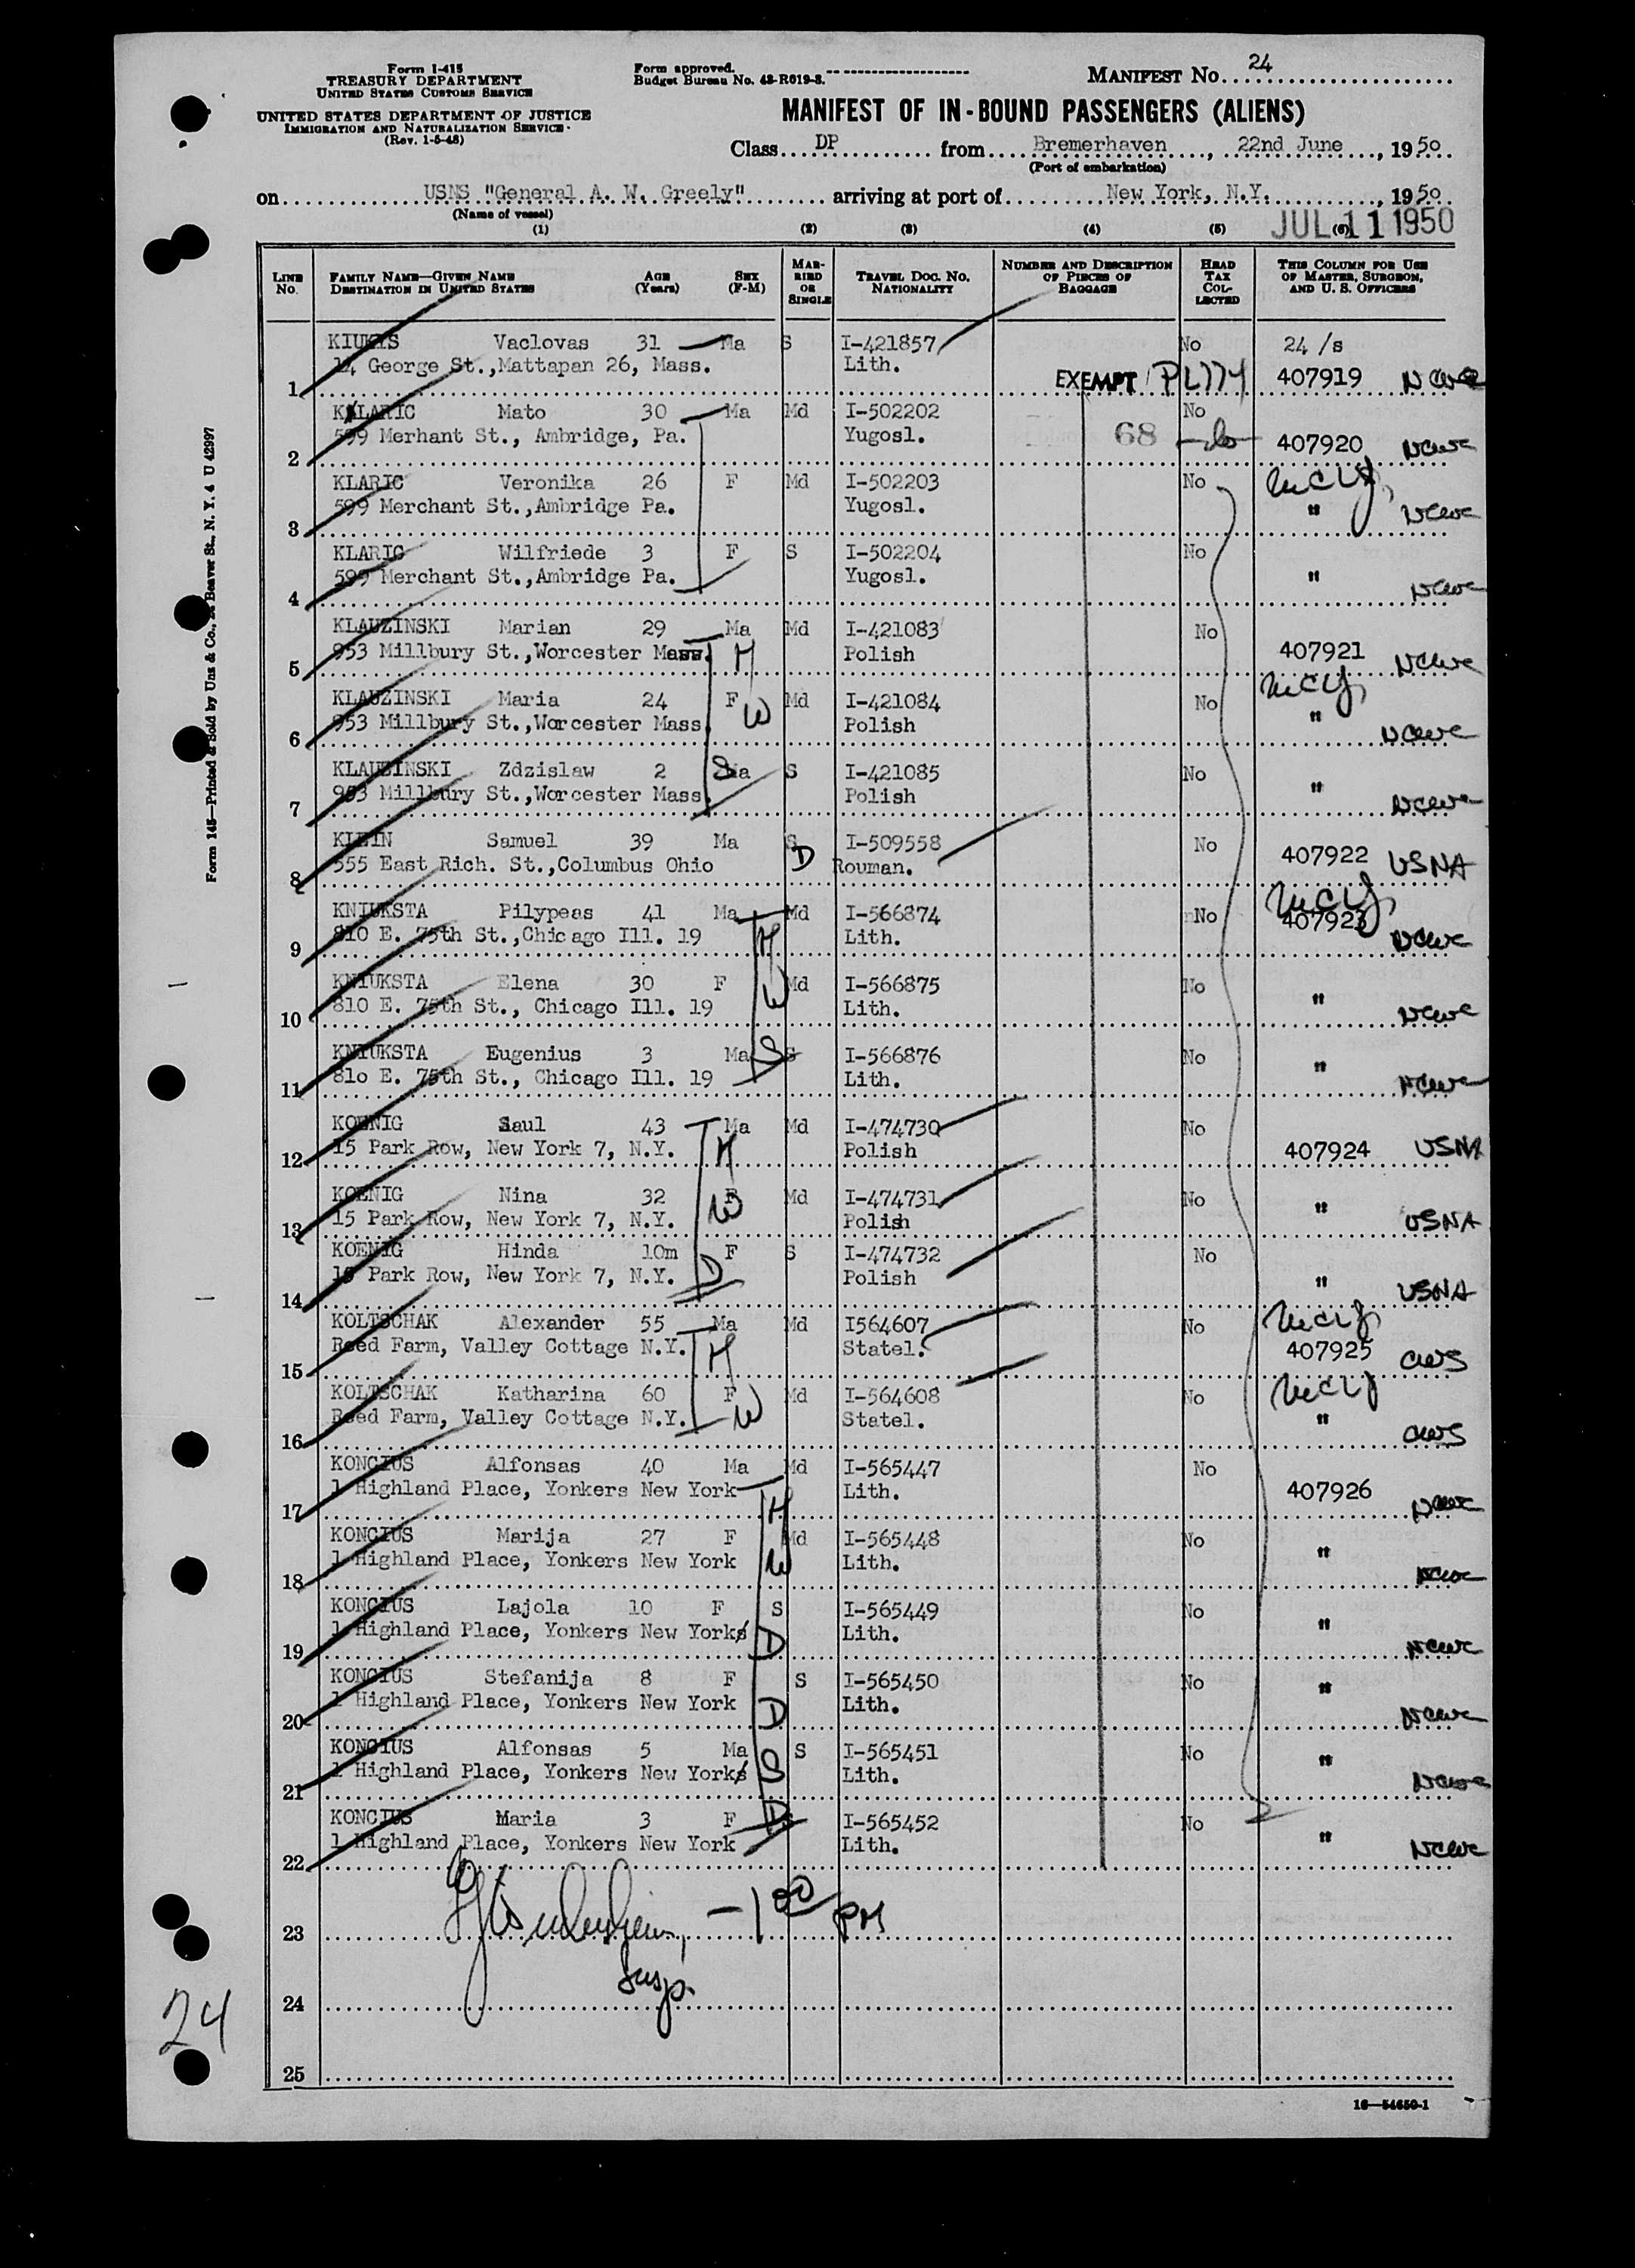 Form I-415
TREASURY DEPARTMENT
UNITED STATES CUSTOMS SERVICE
UNITED STATES DEPARTMENT OF JUSTICE
IMMIGRATION AND NATURALIZATION SERVICE
(Rev. 1-5-48)
Form approved.
Budget Bureau No. 43-R019-3.
MANIFEST No. 24
MANIFEST OF IN-BOUND PASSENGERS (ALIENS)
Class DP from Bremerhaven, 22nd June, 1950
(Port of embarkation)
on USNS "General A. W. Greely" arriving at port of New York, N.Y., 1950
(Name of vessel)
JUL 11 1950
(1) (2) (3) (4) (5) (6)
LINE No. FAMILY NAME—GIVEN NAME DESTINATION IN UNITED STATES AGE (Years) SEX (F-M) MARRIED OR SINGLE TRAVEL DOC. NO. NATIONALITY NUMBER AND DESCRIPTION OF PIECES OF BAGGAGE HEAD TAX COLLECTED THIS COLUMN FOR USE OF MASTER, SURGEON, AND U. S. OFFICERS
Vaclovas 31 Ma S I-421857 No 24 /s
1 14 George St.,Mattapan 26, Mass. Lith. EXEMPT PL774 407919 NCWC
KLARIC Mato 30 Ma Md I-502202 No
2 599 Merhant St., Ambridge, Pa. Yugosl. 68 -do- 407920 NCWC
KLARIC Veronika 26 F Md I-502203 No
3 599 Merchant St.,Ambridge Pa. Yugosl. " NCWC
KLARIC Wilfriede 3 F S I-502204 No
4 599 Merchant St.,Ambridge Pa. Yugosl. " NCWC
KLAUZINSKI Marian 29 Ma Md I-421083 No
5 953 Millbury St.,Worcester Mass. H Polish 407921 NCWC
KLAUZINSKI Maria 24 F W Md I-421084 No
6 953 Millbury St.,Worcester Mass. Polish " NCWC
KLAUZINSKI Zdzislaw 2 S Ma S I-421085 No
7 953 Millbury St.,Worcester Mass. Polish " NCWC
KLEIN Samuel 39 Ma S I-509558 No
8 555 East Rich. St.,Columbus Ohio D Rouman. 407922 USNA
KNIUKSTA Pilypeas 41 Ma Md I-566874 No
9 810 E. 75th St.,Chicago Ill. 19 H Lith. 407923 NCWC
KNIUKSTA Elena 30 F W Md I-566875 No
10 810 E. 75th St., Chicago Ill. 19 Lith. " NCWC
KNIUKSTA Eugenius 3 Ma S S I-566876 No
11 81o E. 75th St., Chicago Ill. 19 Lith. " NCWC
KOENIG Saul 43 Ma Md I-474730 No
12 15 Park Row, New York 7, N.Y. H Polish 407924 USNA
KOENIG Nina 32 F Md I-474731 No
13 15 Park Row, New York 7, N.Y. W Polish " USNA
KOENIG Hinda 10m F S I-474732 No
14 15 Park Row, New York 7, N.Y. D Polish " USNA
KOLTSCHAK Alexander 55 Ma Md I564607 No
15 Reed Farm, Valley Cottage N.Y. H Statel. 407925 CWS
KOLTSCHAK Katharina 60 F Md I-564608 No
16 Reed Farm, Valley Cottage N.Y. W Statel. " CWS
KONCIUS Alfonsas 40 Ma Md I-565447 No
17 1 Highland Place, Yonkers New York H Lith. 407926 NCWC
KONCIUS Marija 27 F Md I-565448 No
18 1 Highland Place, Yonkers New York W Lith. " NCWC
KONCIUS Lajola 10 F S I-565449 No
19 1 Highland Place, Yonkers New York D Lith. " NCWC
KONCIUS Stefanija 8 F S I-565450 No
20 1 Highland Place, Yonkers New York D Lith. " NCWC
KONCIUS Alfonsas 5 Ma S I-565451 No
21 1 Highland Place, Yonkers New York S Lith. " NCWC
KONCIUS Maria 3 F D S I-565452 No
22 1 Highland Place, Yonkers New York Lith. " NCWC
23 - 1 00 PM
Insp.
24
25
16—54650-1
24
Form 145—Printed & Sold by Unz & Co., Beaver St., N. Y. 4 U 42997